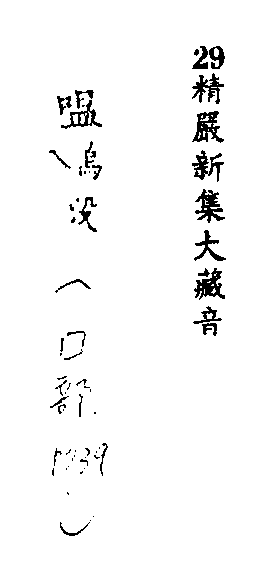 29精嚴新集大藏音
嗢烏没(口部1039)